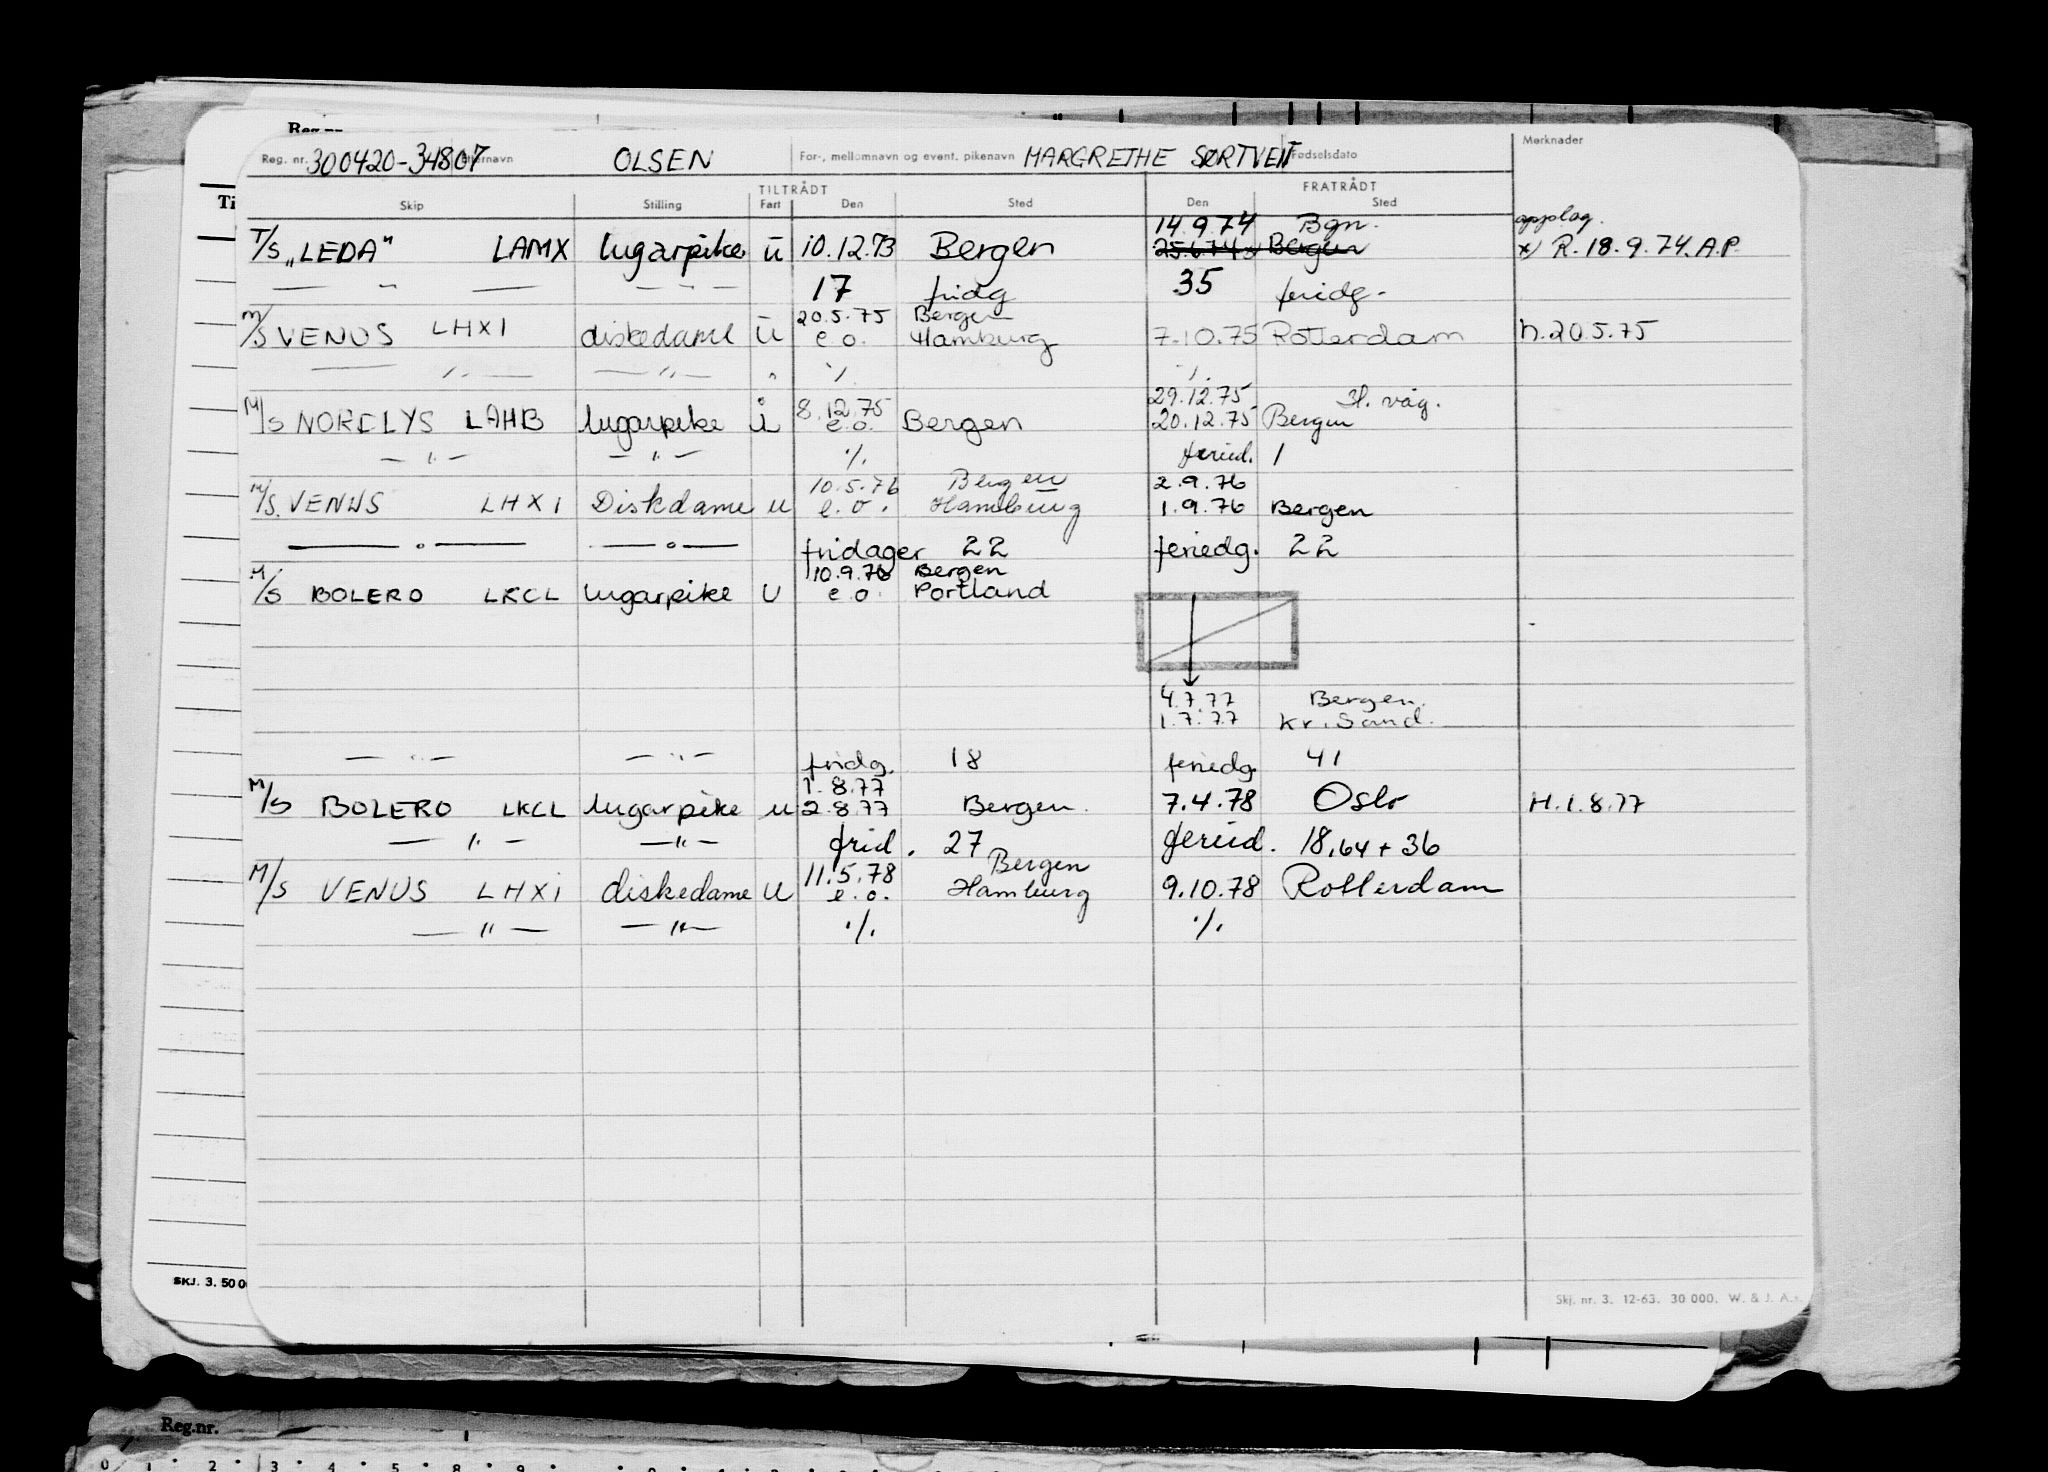 Reg.nr.
Reg. nr. 300420-34807 Etternavn OLSEN For-, mellomnavn og event. pikenavn MARGRETHE SØRTVEIT Fødselsdato Merknader
Ti
TILTRÅDT FRATRÅDT
Skip Stilling Fart Den Sted Den Sted
14.9.74 Bgn. opplag.
T/S „LEDA" LAMX lugarpike u 10.12.73 Bergen 25.6.74 x) Bergen x) R. 18.9.74. A.P.
— " — — " — 17 fridg 35 feridg.
20.5.75 Bergen
M/S VENUS LHXI diskedame u e o. Hamburg 7.10.75 Rotterdam h. 20.5.75
— " — — " — " ./. ./.
8.12.75 29.12.75 H. våg.
M/S NORDLYS LAHB lugarpike i e.o. Bergen 20.12.75 Bergen
— " — — " — ./. feried. 1
10.5.76 Bergen 2.9.76
M/S. VENUS LHXI Diskdame u e.o. Hamburg 1.9.76 Bergen
— o — — o — fridager 22 feriedg. 22
10.9.76 Bergen
M/S BOLERO LKCL lugarpike u e o. Portland
4.7.77 Bergen.
1.7.77 Kr. Sand.
— " — — " — fridg. 18 feriedg. 41
1.8.77
M/S BOLERO LKCL lugarpike u 2.8.77 Bergen. 7.4.78 Oslo H. 1.8.77
— " — — " — frid. 27 feried. 18,64 + 36
11.5.78 Bergen
M/S VENUS LHXI diskedame u e.o. Hamburg 9.10.78 Rotterdam
— " — — " — ./. ./.
SKJ. 3. 50 00
Skj. nr. 3. 12-63. 30 000. W. & J. A.s.
Reg.nr.
0 1 2 3 4 5 8 9